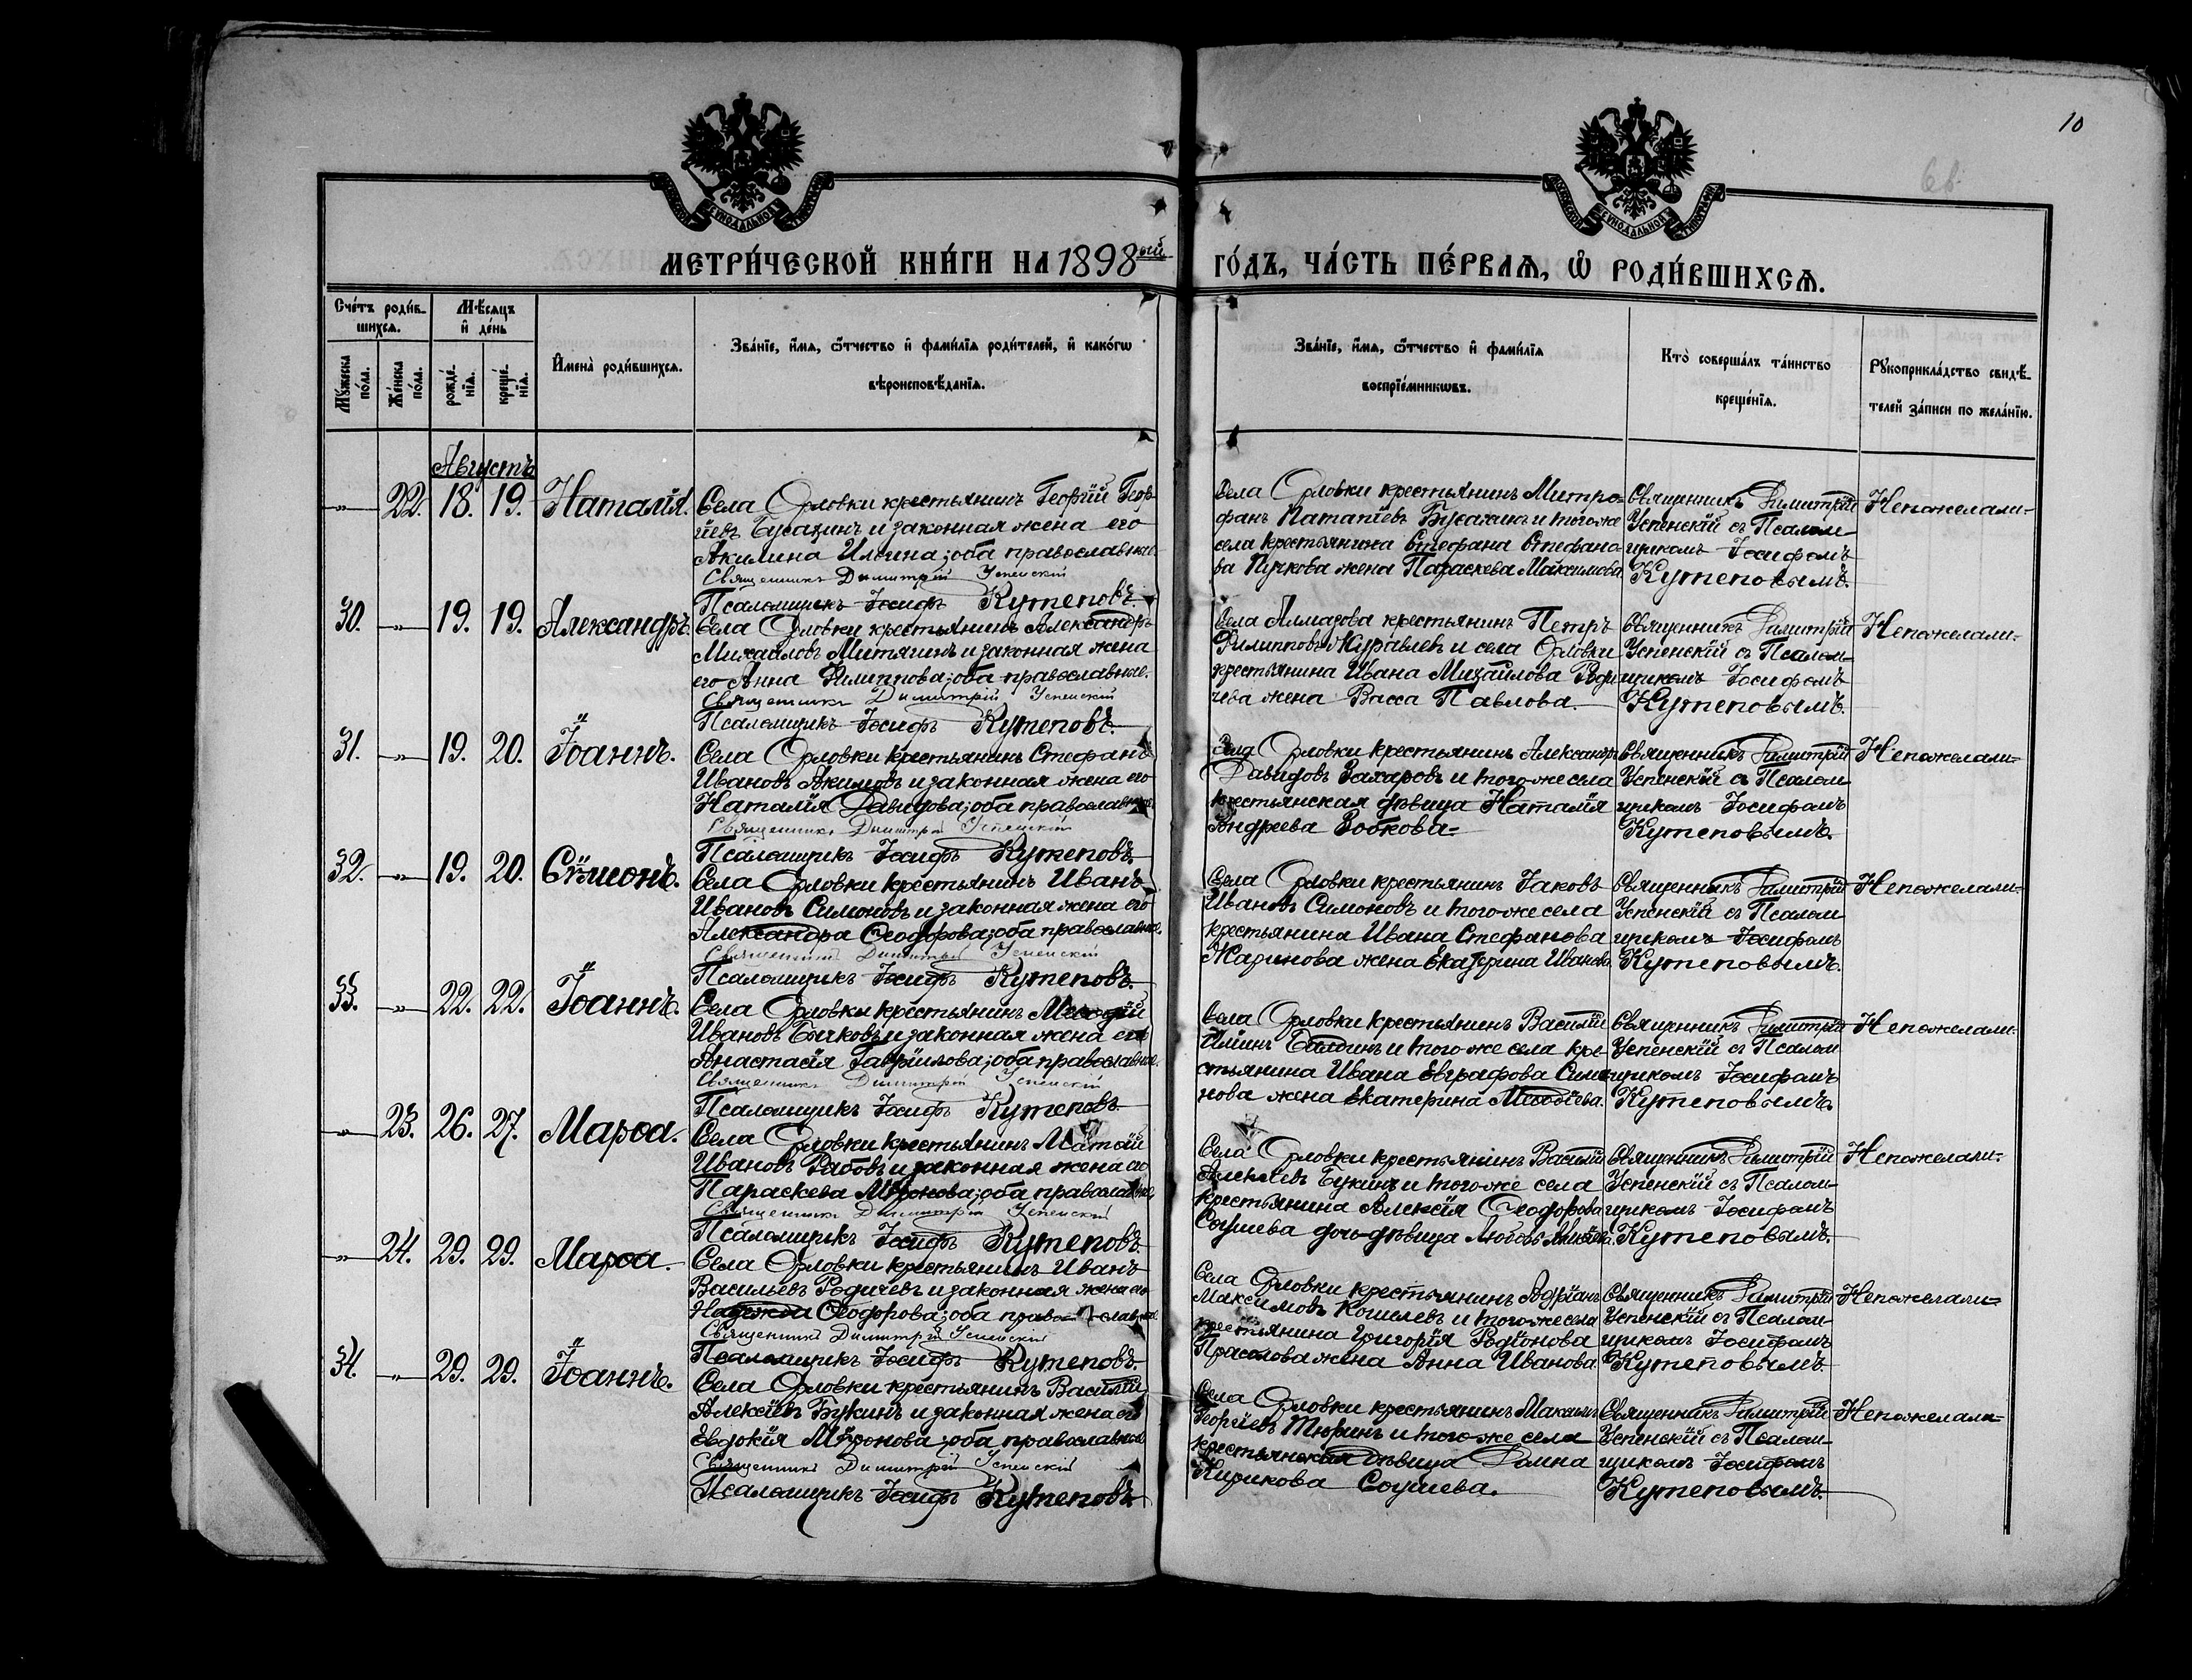 10
МЕТРИ́ЧЕСКОЙ КНИ́ГИ НА 1898ой ГО́ДЪ, ЧА́СТЬ ПЕ́РВАѦ, Ѿ РОДИ́ВШИХСѦ.
Счетъ роди́вшихсѧ.
Мѣ́сяцъ и҆ де́нь
Мꙋ́жеска по́ла.
Же́нска по́ла.
рожде́нїѧ.
креще́нїѧ.
И҆мена̀ роди́вшихсѧ.
Зва́нїе, и҆́мѧ, ѻ҆́тчество и҆ фами́лїѧ роди́телей, и҆ како́гѡ
вѣроисповѣ́данїѧ.
Зва́нїе, и҆́мѧ, ѻ҆́тчество и҆ фами́лїѧ
воспрїе́мникѡвъ.
Кто̀ соверша́лъ та́инство
креще́нїѧ.
Рꙋкоприкла́дство свидѣ́-
телей за́писи по жела́нїю.
Августъ
22. 18. 19. Наталія.
Села Орловки крестьянинъ Георгій Геор-
гіевъ Бусагинъ и законная жена его
Акилина Ильина; оба православные.
Священникъ Димитрій Успенскій
Псаломщикъ Іосифъ Кутеповъ.
Села Орловки крестьянинъ Митро-
фанъ Патапіевъ и тогоже
села крестьянина Стефана Стефано-
ва Пучкова жена Параскева Максимова
Священникъ Димитрій
Успенскій съ Псалом-
щикомъ Іосифомъ
Кутеповымъ.
Непожелали-
30. 19. 19. Александръ.
Села Орловки крестьянинъ Александръ
Михаиловъ Митягинъ и законная жена
его Анна Филиппова; оба православные.
Священникъ Димитрій Успенскій
Псаломщикъ Іосифъ Кутеповъ.
Села Алмазова крестьянинъ Петръ
Филипповъ Журавлевъ и села Орловки
крестьянина Ивана Михайлова Роди-
чева жена Васса Павлова.
Священникъ Димитрій
Успенскій съ Псалом-
щикомъ Іосифомъ
Кутеповымъ.
Непожелали-
31. 19. 20. Іоаннъ.
Села Орловки крестьянинъ Стефанъ
Ивановъ Акимовъ и законная жена его
Наталія Давидова; оба православные.
Священникъ Димитрій Успенскій
Псаломщикъ Іосифъ Кутеповъ.
Села Орловки крестьянинъ Александръ
Давидовъ Захаровъ и тогоже села
крестьянская дѣвица Наталія
Андреева Зобкова-
Священникъ Димитрій
Успенскій съ Псалом
щикомъ Іосифомъ
Кутеповымъ.
Непожелали-
32. 19. 20. Сѵмеонъ.
Села Орловки крестьянинъ Иванъ
Ивановъ Симоновъ и законная жена его
Александра Ѳеодорова; оба православные.
Священникъ Димитрій Успенскій
Псаломщикъ Іосифъ Кутеповъ.
Села Орловки крестьянинъ Іаковъ
Ивановъ Симоновъ и тогоже села
крестьянина Ивана Стефанова
Жаринова жена Екатерина Иванова.
Священникъ Димитрій
Успенскій съ Псалом
щикомъ Іосифомъ
Кутеповымъ.
Непожелали-
33. 22. 22. Іоаннъ.
Села Орловки крестьянинъ Меѳодій
Ивановъ Бычковъ и законная жена его
Анастасія Гавріилова; оба православные.
Священникъ Димитрій Успенскій
Псаломщикъ Іосифъ Кутеповъ
Села Орловки крестьянинъ Василій
Ильинъ и тогоже села кре-
стьянина Ивана Евграфова Симо-
нова жена Екатерина Меѳодіева.
Священникъ Димитрій
Успенскій съ Псалом
щикомъ Іосифомъ
Кутеповымъ.
Непожелали-
23. 26. 27. Марѳа.
Села Орловки крестьянинъ Матѳій
Ивановъ Рабовъ и законная жена его
Параскева Миронова; оба православные,
Священникъ Димитрій Успенскій
Псаломщикъ Іосифъ Кутеповъ.
Села Орловки крестьянинъ Василій
Алексіевъ Букинъ и тогоже села
крестьянина Алексія Ѳеодорова
дочь дѣвица Любовь
Священникъ Димитрій
Успенскій съ Псалом-
щикомъ Іосифомъ
Кутеповымъ.
Непожелали-
24. 29. 29. Марѳа.
Села Орловки крестьянинъ Иванъ
Васильевъ Родичевъ и законная жена его
Надежда Ѳеодорова; оба православные.
Священникъ Димитрій Успенскій
Псаломщикъ Іосифъ Кутеповъ.
Села Орловки крестьянинъ Адріанъ
Максимовъ Кошелевъ и тогоже села
крестьянина Григорія Родіонова
Прасолова жена Анна Иванова
Священникъ Димитрій
Успенскій съ Псалом-
щикомъ Іосифомъ
Кутеповымъ
Непожелали-
34. 29. 29. Іоаннъ.
Села Орловки крестьянинъ Василій
Алексіевъ Букинъ и законная жена его
Евдокія Мѵронова; оба православные
Священникъ Димитрій Успенскій
Псаломщикъ Іосифъ Кутеповъ.
Села Орловки крестьянинъ Максимъ
Георгіевъ Тюринъ и тогоже села
крестьянская дѣвица Домна
Кирикова
Священникъ Димитрій
Успенскій съ Псалом-
щикомъ Іосифомъ
Кутеповымъ.
Непожелали-